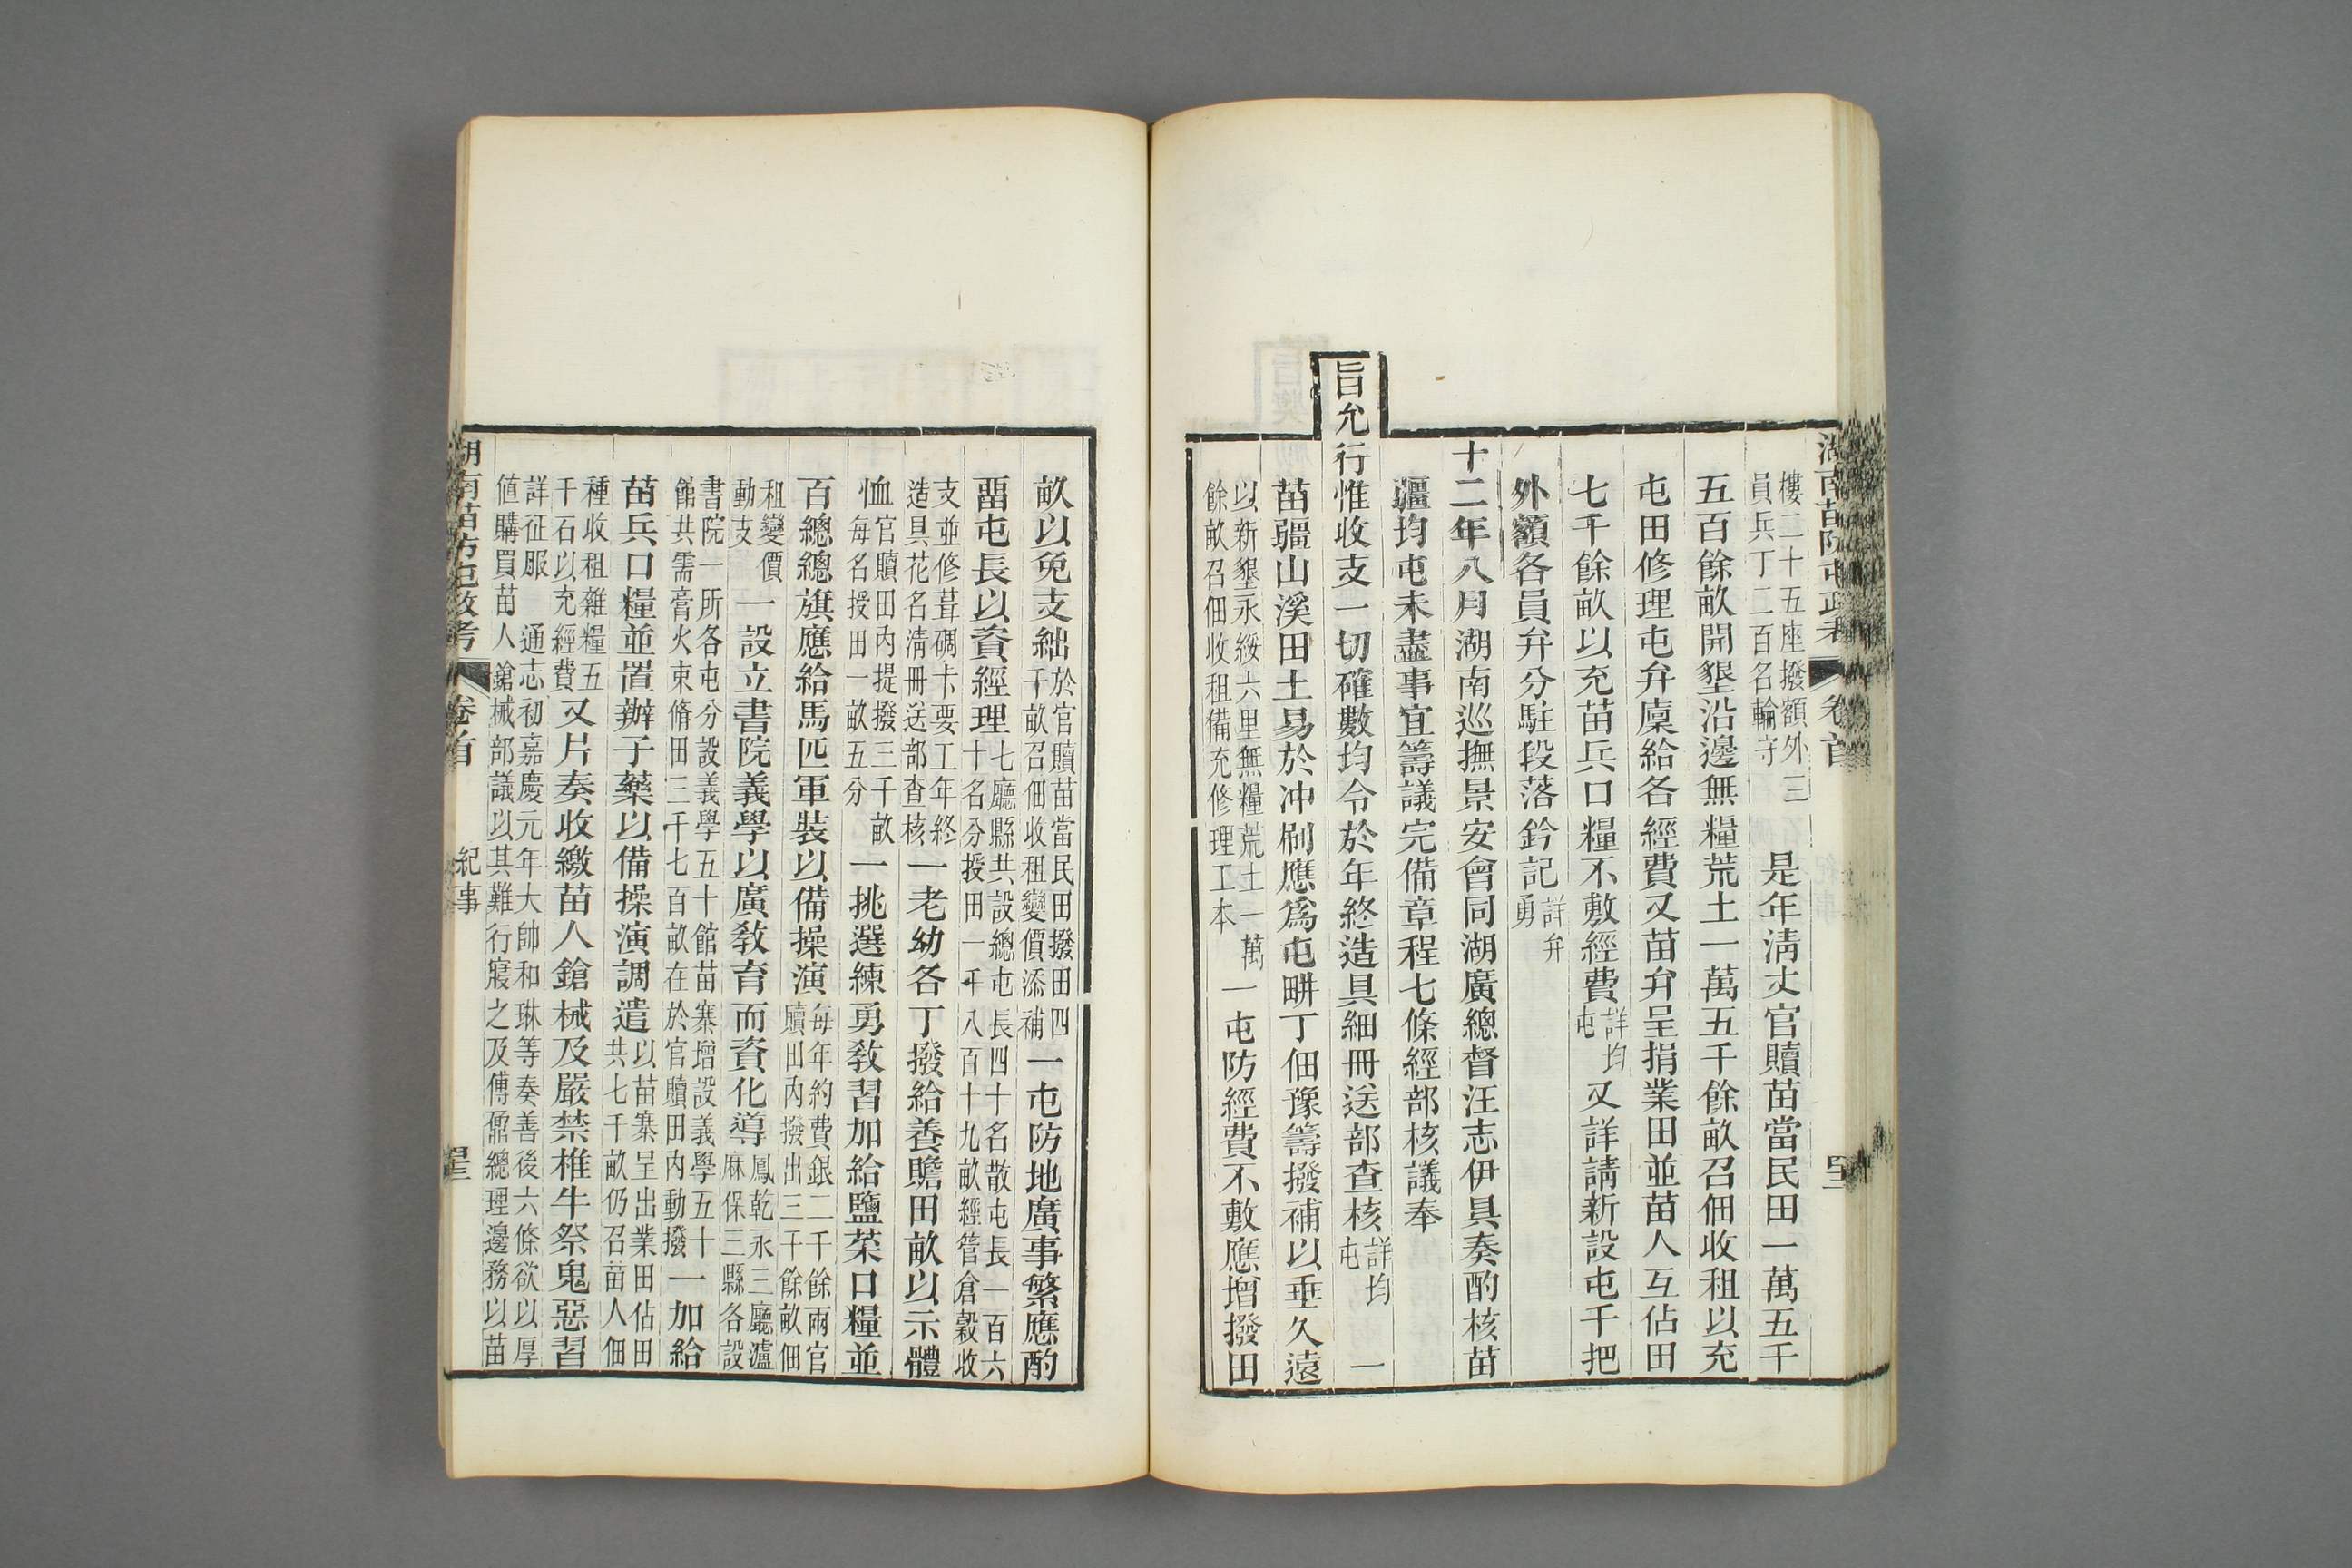 湖南苗防屯政考 卷首
樓二十五座撥額外三員兵丁二百名輪守 是年淸丈官贖苗當民田一萬五千
五百餘畝開墾沿邊無糧荒土一萬五千餘畝召佃收租以充
屯田修理屯弁廩給各經費又苗弁呈捐業田並苗人互佔田
七千餘畝以充苗兵口糧不敷經費詳均屯又詳請新設屯千把
外額各員弁分駐段落鈐記詳弁勇
十二年八月湖南巡撫景安會同湖廣總督汪志伊具奏酌核苗
疆均屯未盡事宜籌議完備章程七條經部核議奉
旨允行惟收支一切確數均令於年終造具細冊送部查核詳均屯 一
苗疆山溪田土易於冲刷應爲屯畊丁佃豫籌撥補以垂久遠
以新墾永綏六里無糧荒土一萬餘畝召佃收租備充修理工本 一屯防經費不敷應增撥田
畝以免支絀於官贖苗當民田撥田四千畝召佃收租變價添補 一屯防地廣事繁應酌
畱屯長以資經理七廳縣共設總屯長四十名散屯長一百六十名分授田一千八百十九畝經管倉穀收
支並修葺碉卡要工年終造具花名淸冊送部查核 一老幼各丁撥給養贍田畝以示體
恤官贖田內提撥三千畝每名授田一畝五分 一挑選練勇教習加給鹽菜口糧並
百總總旗應給馬匹軍裝以備操演每年約費銀二千餘兩官贖田內撥出三千餘畝佃
租變價動支 一設立書院義學以廣教育而資化導鳳乾永三廳瀘麻保三縣各設
書院一所各屯分設義學五十館苗寨增設義學五十館共需膏火束脩田三千七百畝在於官贖田內動撥 一加給
苗兵口糧並置辦子藥以備操演調遣以苗寨呈出業田佔田共七千畝仍召苗人佃
種收租雜糧五千石以充經費 又片奏收繳苗人鎗械及嚴禁椎牛祭鬼惡習
詳征服 通志初嘉慶元年大帥和琳等奏善後六條欲以厚値購買苗人鎗械部議以其難行寢之及傅鼐總理邊務以苗
湖南苗防屯政考 卷首 紀事